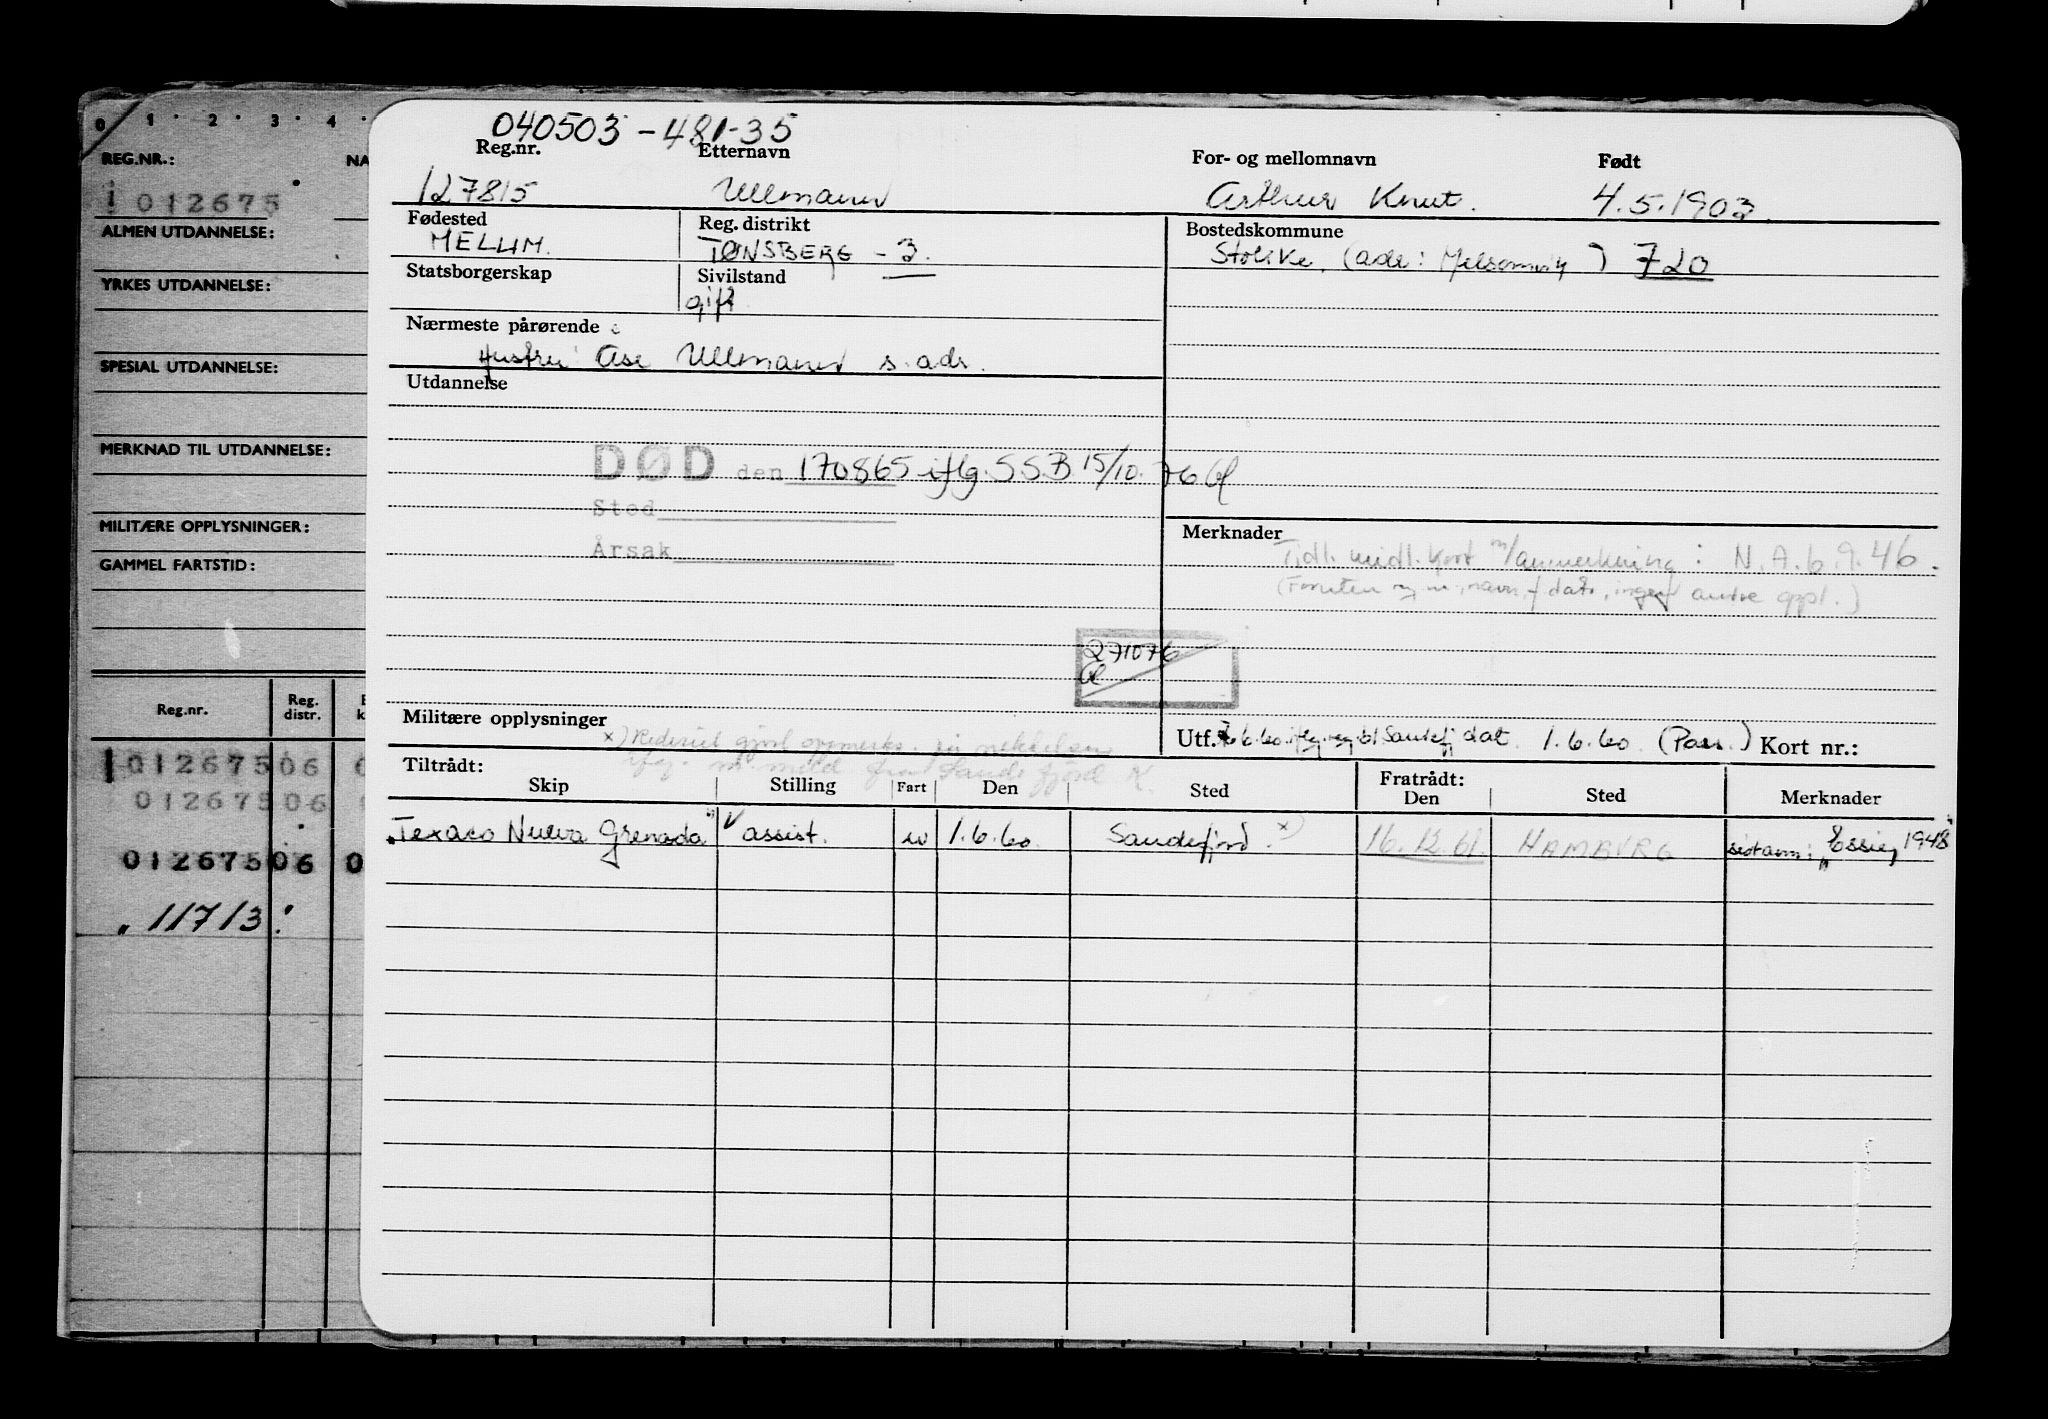 0 1 2 3 4
REG.NR.:
012675
ALMEN UTDANNELSE:
YRKES UTDANNELSE:
SPESIAL UTDANNELSE:
MERKNAD TIL UTDANNELSE:
MILITÆRE OPPLYSNINGER:
GAMMEL FARTSTID:
Reg.nr. Reg. distr.
012675 06
012675 06
012675 06
11713
040503-481-35
Reg.nr. Etternavn For- og mellomnavn Født
127815 Ullmann Arthur Knut. 4.5.1903.
Fødested Reg. distrikt Bostedskommune
MELLIM. TØNSBERG - 3. Stokke. (adr: Melsomvik) 720
Statsborgerskap Sivilstand
gift
Nærmeste pårørende
Hustru: Åse Ullmann s. adr.
Utdannelse
DØD den 170865 iflg. S.S.B 15/10.76
Sted
Årsak
Merknader
Tidl. midl. kort m/anmerkning: N.A. 6.9.46.
(Foruten navn, dato, ingen andre oppl.)
271076
Militære opplysninger
Utf. 6.60 Sandefj. dat. 1.6.60. (Pass.) Kort nr.:
Tiltrådt: Fratrådt:
Skip Stilling Fart Den Sted Den Sted Merknader
"Texaco Nueva Grenada" assist. w 1.6.60. Sandefjord. x) 16.12.61. HAMBURG sistanm: "Essi" 1948